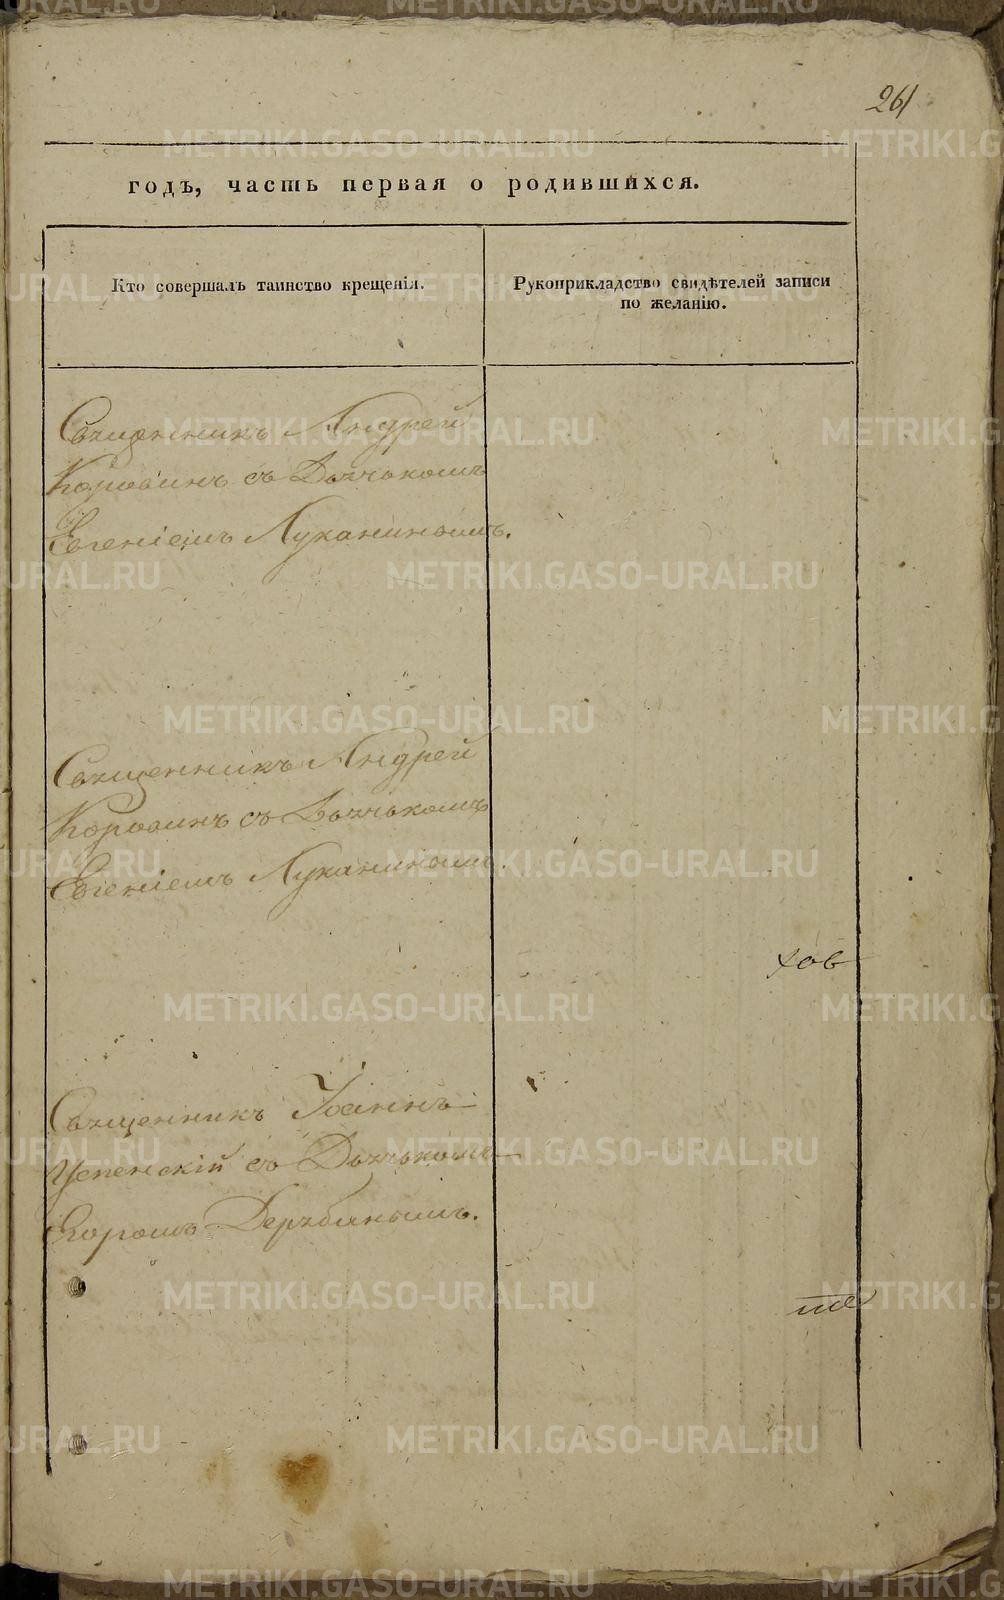 261
годъ, часть первая о родившихся.
Кто совершалъ таинство крещенія.
Рукоприкладство свидѣтелей записи
по желанію.
Священникъ Андрей
Коровинъ съ Дьячькомъ
Евгеніемъ Луканинымъ.
Священникъ Андрей
Коровинъ съ Дьячькомъ
Евгеніемъ Луканинымъ
хов
Священникъ Іоаннъ
Успенскій съ Дьячькомъ
Егоромъ Дерябинымъ.
METRIKI.GASO-URAL.RU